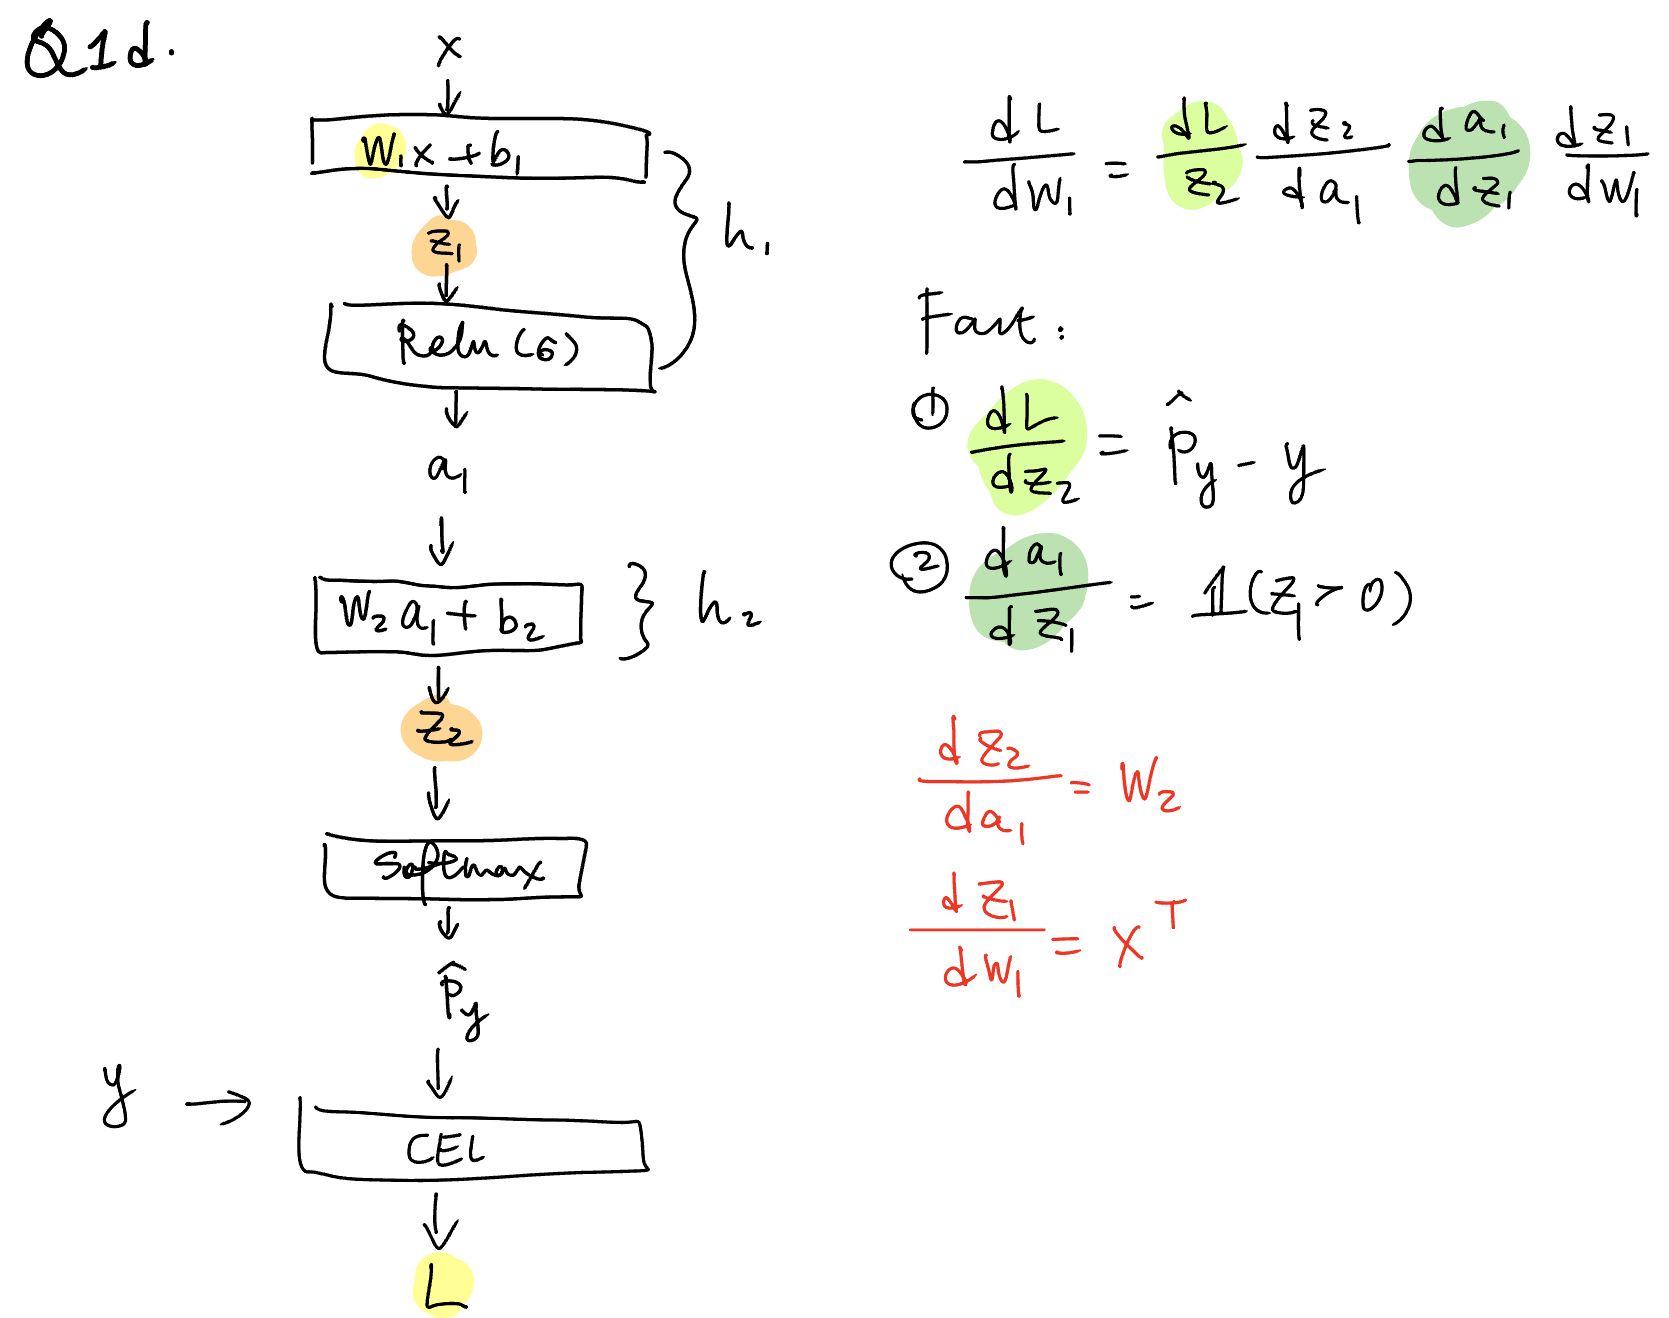 Q1d.
x
W₁x + b₁
z₁
h₁
Relu (6)
a₁
W₂ a₁ + b₂
h₂
z₂
Softmax
p̂y
y →
CEL
L
dL/dW₁ = dL/z₂ dz₂/da₁ da₁/dz₁ dz₁/dW₁
Fact:
① dL/dz₂ = p̂y - y
② da₁/dz₁ = 𝟙(z₁ > 0)
dz₂/da₁ = W₂
dz₁/dW₁ = xᵀ